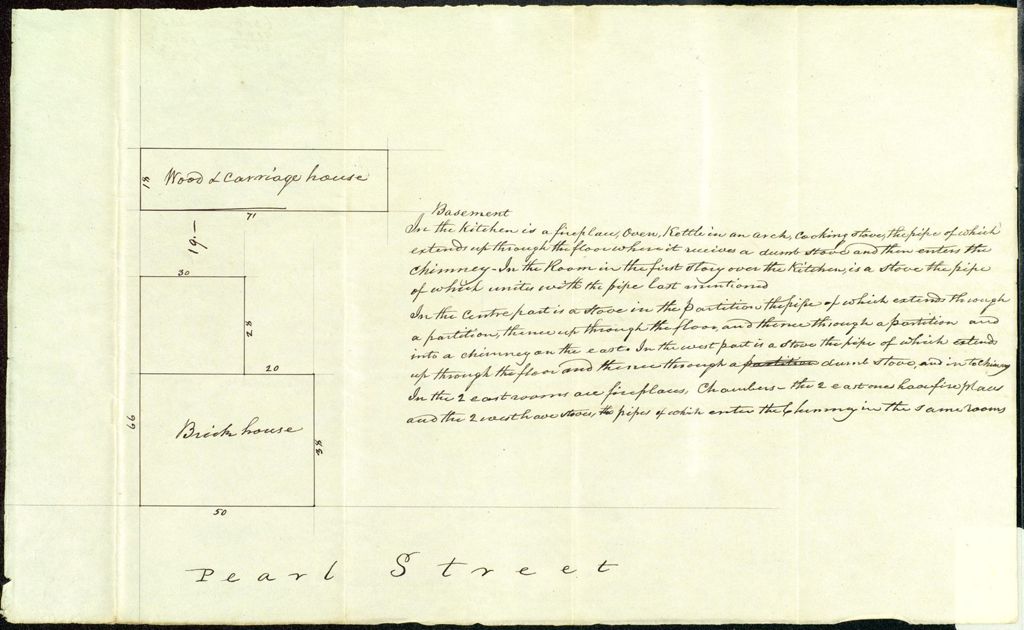 18
Wood & Carriage house
71
19.—
30
28
20
66
Brick house
38
50
Basement
In the Kitchen is a fireplace, Oven, Kettle in an arch, Cooking stove, the pipe of which
extends up through the floor where it receives a dumb stove and then enters the
Chimney - In the Room in the first story over the Kitchen, is a stove the pipe
of which unites with the pipe last mentioned
In the Centre part is a stove in the Partition the pipe of which extends through
a partition, thence up through the floor, and thence through a partition and
into a chimney on the east. In the west part is a stove the pipe of which extends
up through the floor and thence through a partition dumb stove, and into Chimney
In the 2 east rooms are fireplaces, Chambers - the 2 east ones have fireplaces
and the 2 west have stoves, the pipes of which enter the Chimney in the same rooms
Pearl Street